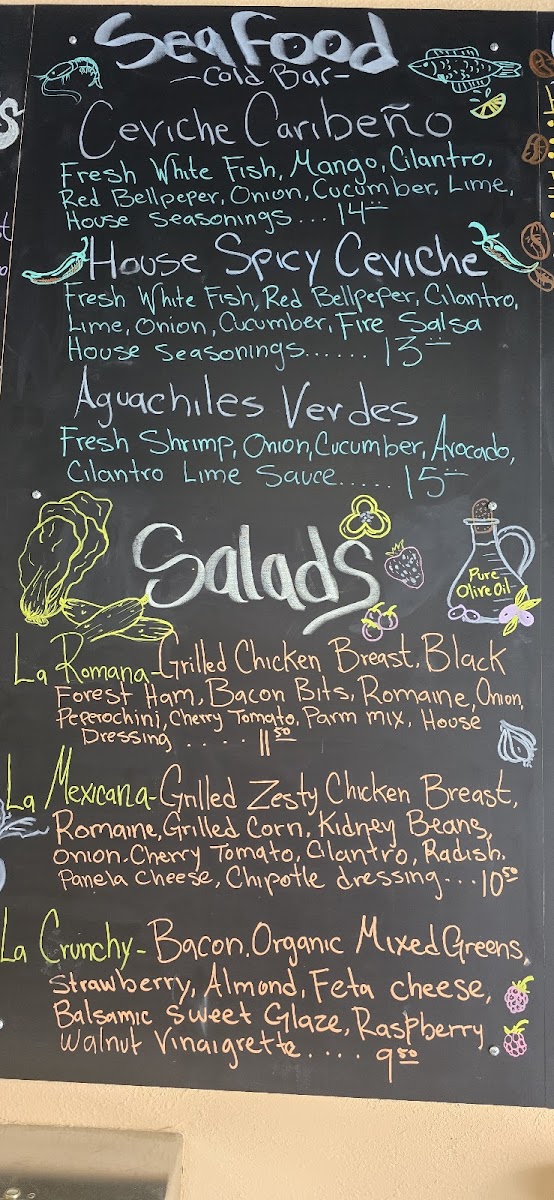 Seafood
-Cold Bar-
Ceviche Caribeño
Fresh White Fish, Mango, Cilantro,
Red Bellpeper, Onion, Cucumber, Lime,
House Seasonings... 14
House Spicy Ceviche
Fresh White Fish, Red Bellpeper, Cilantro,
Lime, Onion, Cucumber, Fire Salsa
House Seasonings...... 13
Aguachiles Verdes
Fresh Shrimp, Onion, Cucumber, Avocado,
Cilantro Lime Sauce..... 15
Salads
Pure
Olive Oil
La Romana-Grilled Chicken Breast, Black
Forest Ham, Bacon Bits, Romaine, Onion,
Peperochini, Cherry Tomato, Parm mix, House
Dressing ..... 11 50
La Mexicana-Grilled Zesty Chicken Breast,
Romaine, Grilled Corn, Kidney Beans,
Onion. Cherry Tomato, Cilantro, Radish.
Panela Cheese, Chipotle dressing...10 50
La Crunchy- Bacon, Organic Mixed Greens,
Strawberry, Almond, Feta cheese,
Balsamic Sweet Glaze, Raspberry
Walnut Vinaigrette..... 9 50